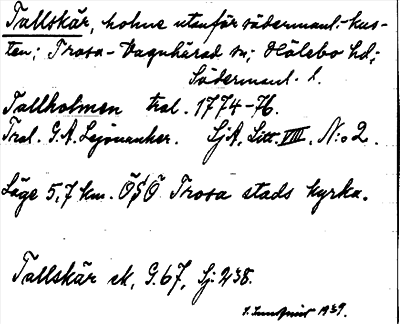 Tallskär, holme utanför södermanl.-kus-
ten; Trosa-Vagnhärad sn; Hölebo hd;
Södermanl. l.
Tallholmen tral. 1774-76.
Tral. G.A. Lejonanker. SjA. Litt. VIII, N:o 2.
Läge 5,7 km. ÖSÖ Trosa stads kyrka.
Tallskär ek, G. 67, Sj. 238.
1939.